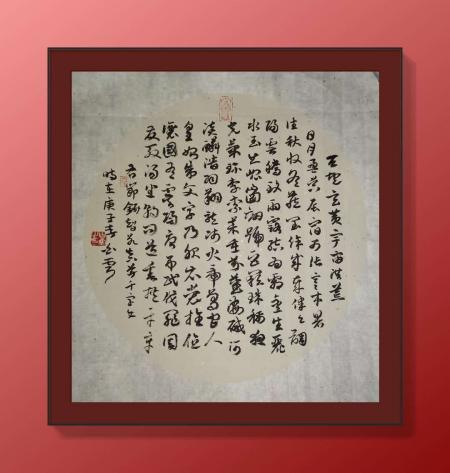 天地玄黄宇宙洪荒
日月盈昃辰宿列张寒来暑
往秋收冬藏闰余成岁律吕调
阳云腾致雨露结为霜金生丽
水玉出昆冈剑号巨阙珠称夜
光果珍李柰菜重芥姜海咸河
淡鳞潜羽翔龙师火帝鸟官人
皇始制文字乃服衣裳推位
让国有虞陶唐吊民伐罪周
发殷汤坐朝问道垂拱平章
右节录智永真草千字文
时在庚子